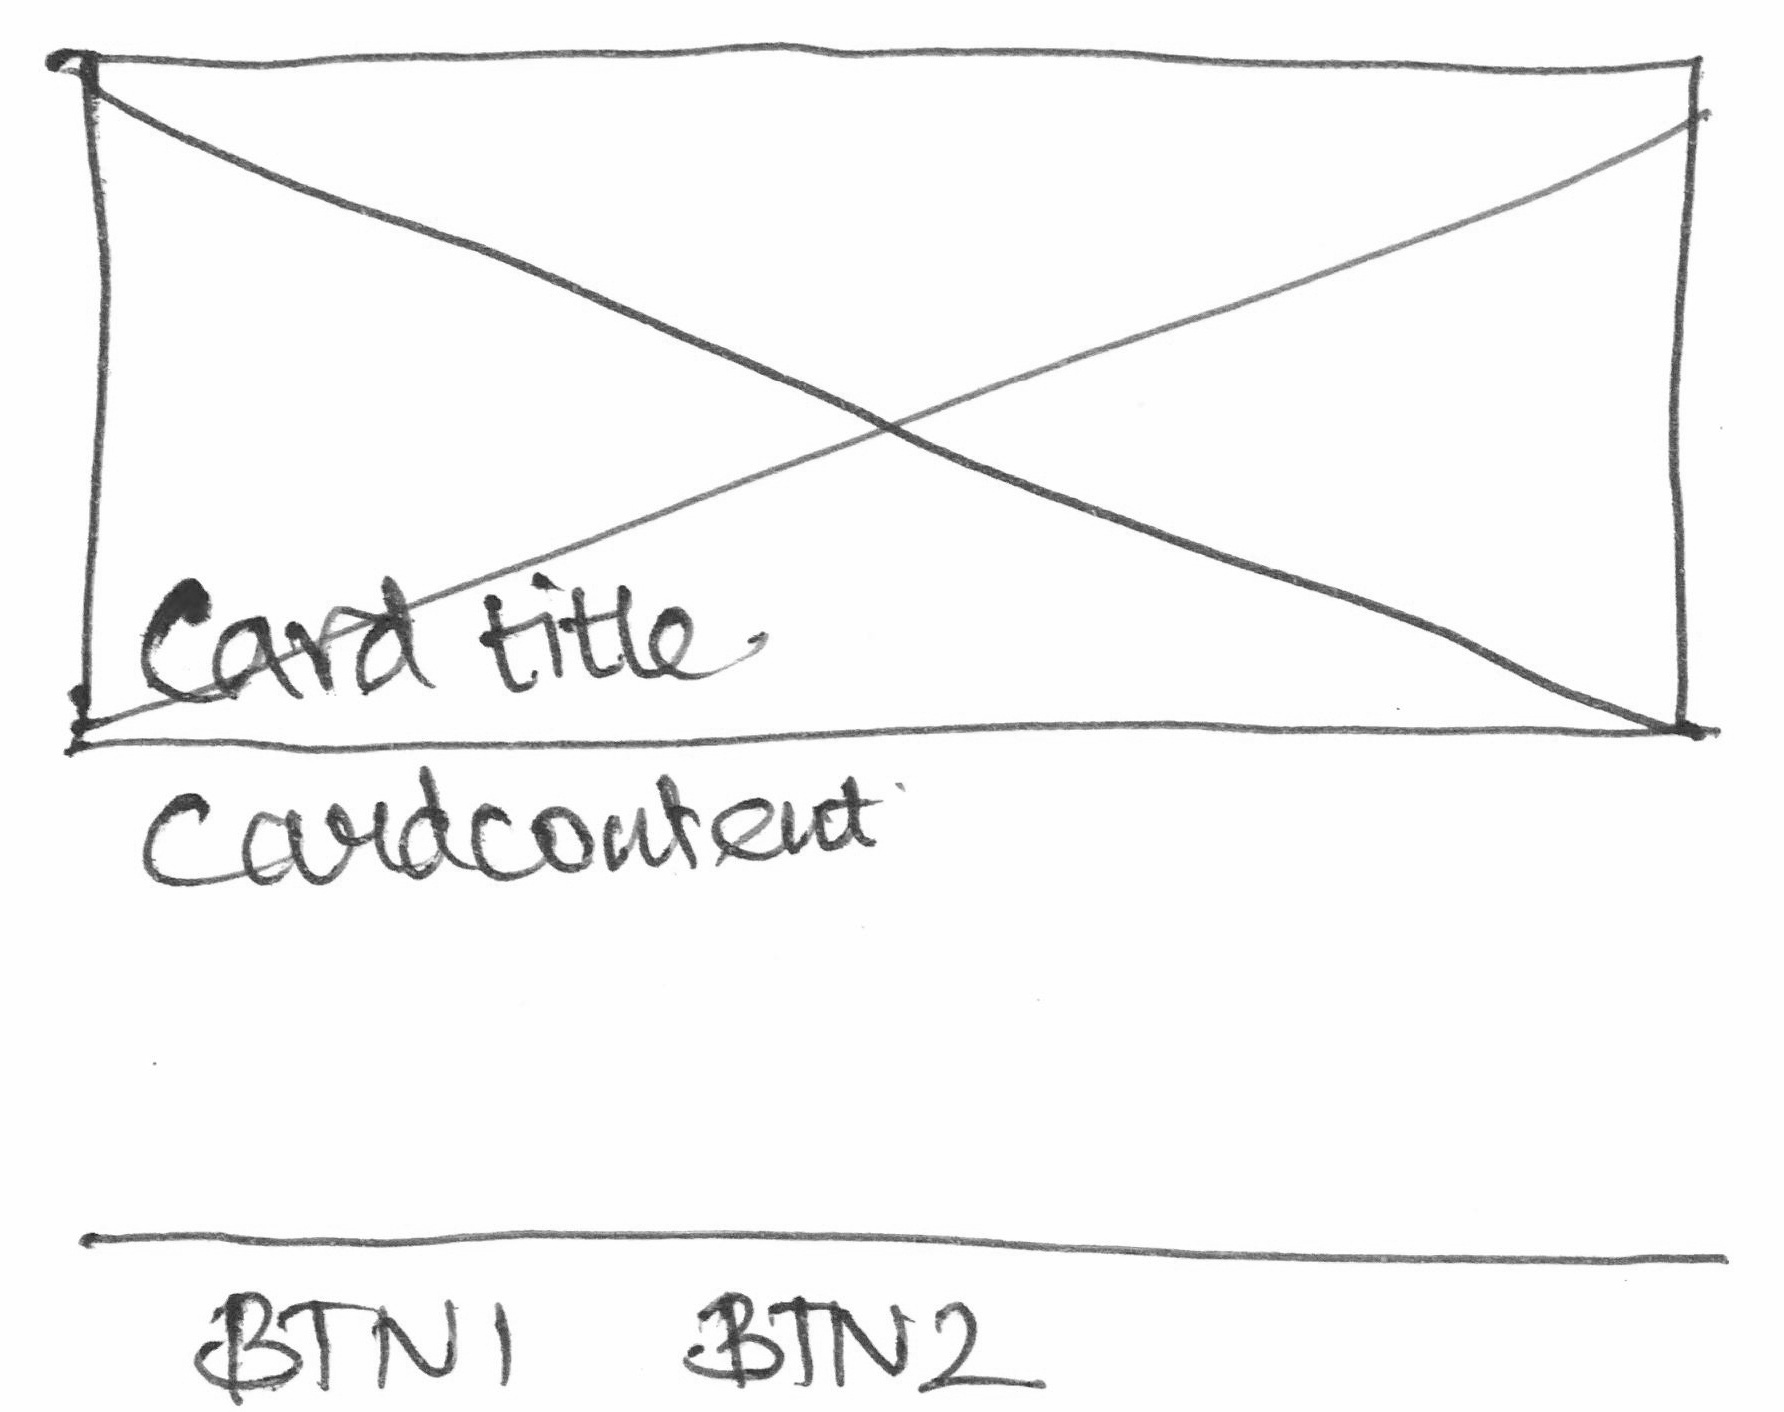 Card title
Cardcontent
BTN1 BTN2